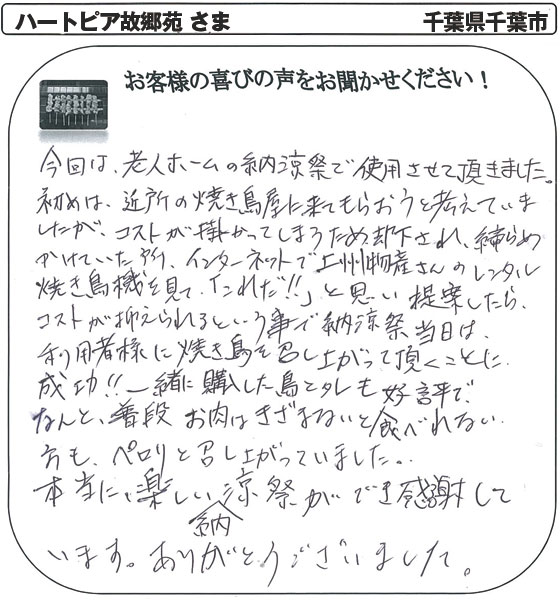 ハートピア故郷苑 さま
千葉県千葉市
お客様の喜びの声をお聞かせください!
今回は、老人ホームの納涼祭で使用させて頂きました。
初めは、近所の焼き鳥屋に来てもらおうと考えていま
したが、コストが掛かってしまうため却下され、締らめ
かけていた所、インターネットで上州物産さんのレンタル
焼き鳥機を見て、「これだ!!」と思い提案したら、
コストが抑えられるという事で納涼祭当日は、
利用者様に焼き鳥を召し上がって頂くことに
成功!! 一緒に購入した鳥とタレも好評で、
なんと、普段お肉はきざまないと食べれない
方も、ペロリと召し上がっていました。
本当に、楽しい納涼祭ができ感謝して
います。ありがとうございました。